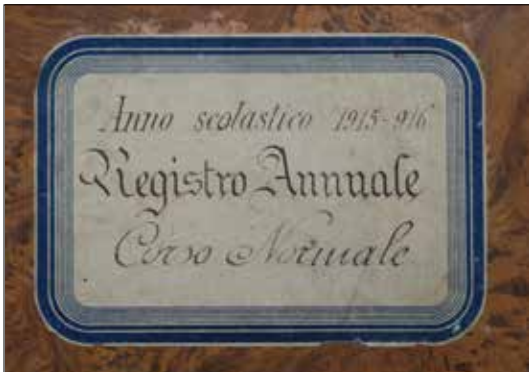 Anno scolastico 1915-916
Registro Annuale
Corso Normale